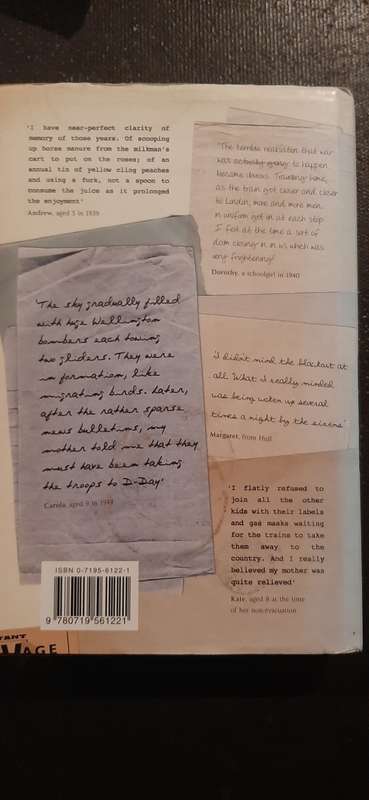 'I have near-perfect clarity of
memory of those years. Of scooping
up horse manure from the milkman's
cart to put on the roses; of an
annual tin of yellow cling peaches
and using a fork, not a spoon to
consume the juice as it prolonged
the enjoyment'
Andrew, aged 5 in 1939
'The terrible realisation that war
was actually going to happen
became obvious. Travelling home,
as the train got closer and closer
to London, more and more men
in uniform got in at each stop.
I felt at the time a sort of
doom closing in on us which was
very frightening'
Dorothy, a schoolgirl in 1940
'The sky gradually filled
with huge Wellington
bombers each towing
two gliders. They were
in formation, like
migrating birds. Later,
after the rather sparse
news bulletins, my
mother told me that they
must have been taking
the troops to D-Day'
Carola, aged 9 in 1944
'I didn't mind the blackout at
all. What I really minded
was being woken up several
times a night by the sirens'
Margaret, from Hull
'I flatly refused to
join all the other
kids with their labels
and gas masks waiting
for the trains to take
them away to the
country. And I really
believed my mother was
quite relieved'
Kate, aged 8 at the time
of her non-evacuation
ISBN 0-7195-6122-1
9 780719 561221